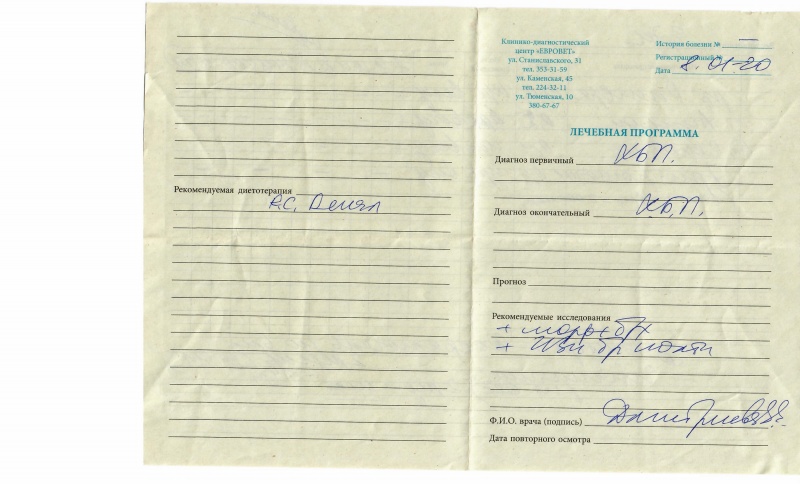 Рекомендуемая диетотерапия
R.C. Ренал
Клинико-диагностический
центр «ЕВРОВЕТ»
ул. Станиславского, 31
тел. 353-31-59
ул. Каменская, 45
тел. 224-32-11
ул. Тюменская, 10
380-67-67
История болезни № —
Регистрационный №
Дата 8.01-20
ЛЕЧЕБНАЯ ПРОГРАММА
Диагноз первичный ХБП.
Диагноз окончательный Х.Б.П.
Прогноз
Рекомендуемые исследования
+ морф + б/х
+ УЗИ бр полости
Ф.И.О. врача (подпись)
Дата повторного осмотра